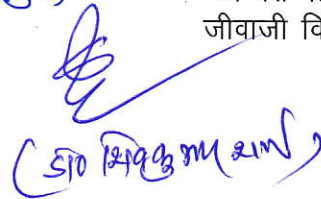 जीवाजी वि
(डॉ० शिवकुमार शर्मा)